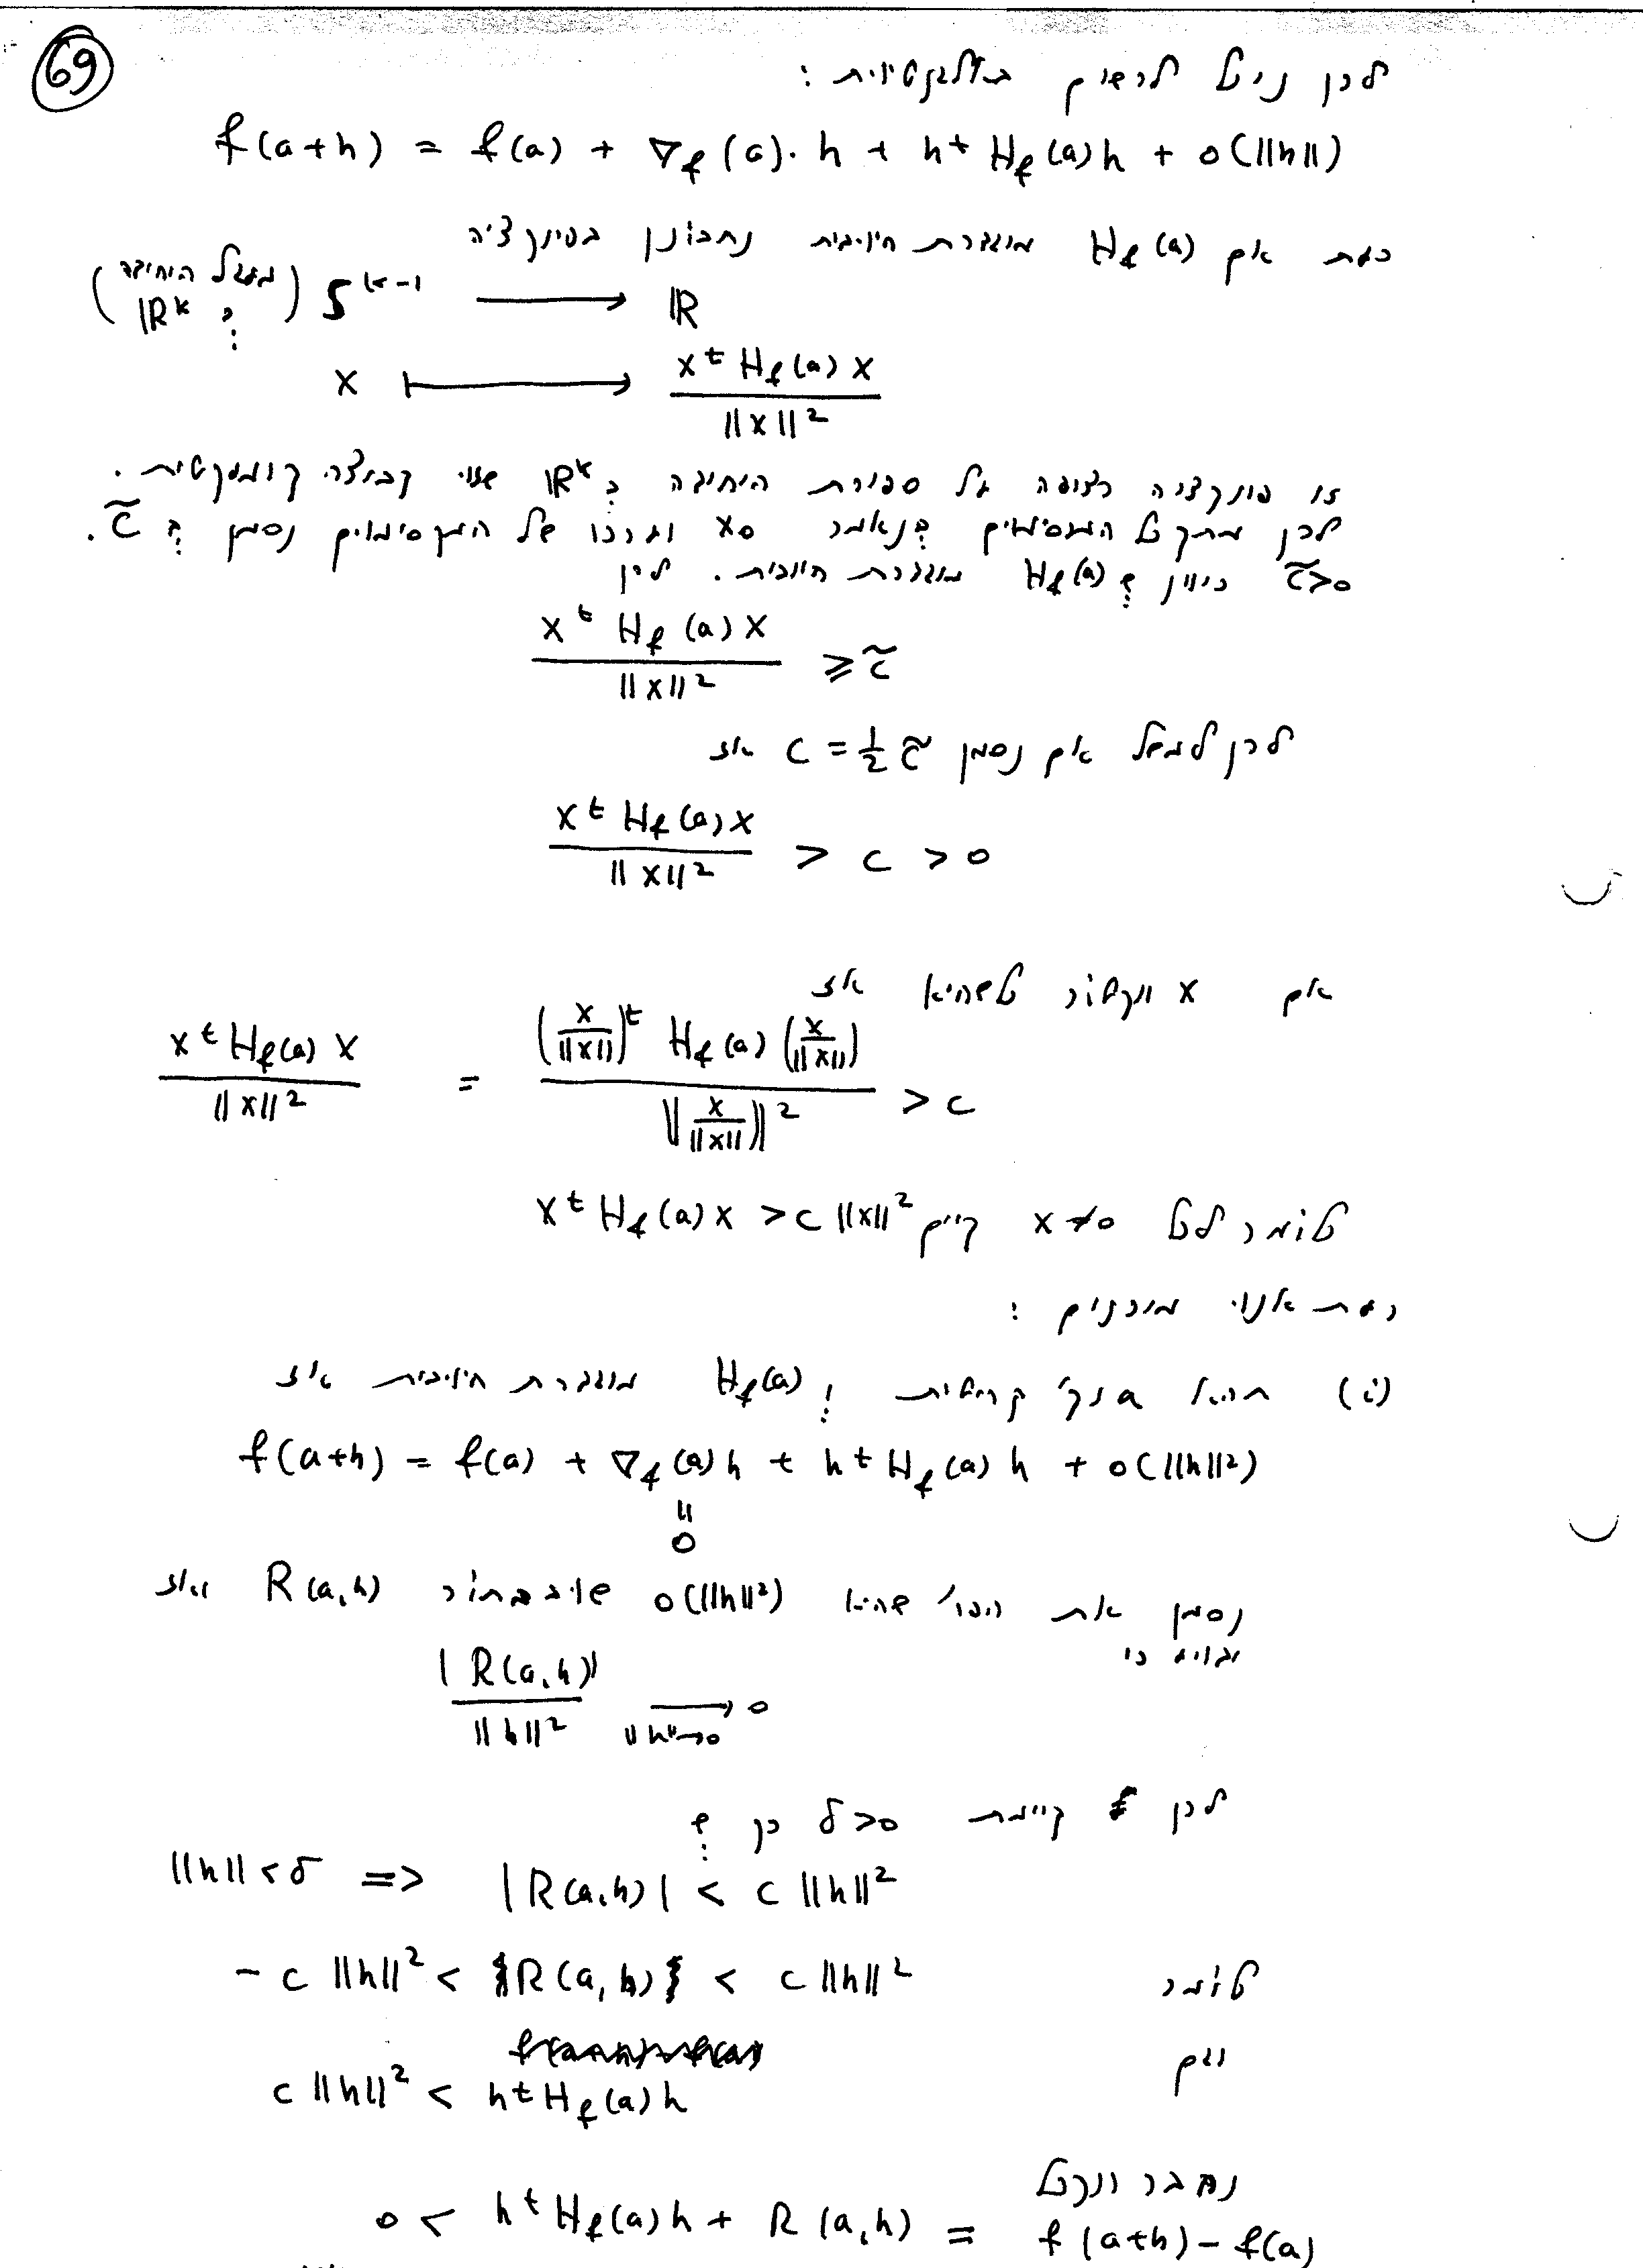 69
לכן נוכל לרשום באלגנטיות :
f(a+h) = f(a) + ∇f(a)·h + h^t H_f(a) h + o(||h||)
כעת אם H_f(a) מוגדרת חיובית נתבונן בפונקציה
(מעגל היחידה ב R^k) S^{k-1} ⟶ R
x ⟼ x^t H_f(a) x / ||x||^2
זו פונקציה רציפה על ספירת היחידה ב R^k שזוי קבוצה קומפקטית .
לכן מתקבל המינימום בנאמר x_0 וערכו של המינימום נסמן ב c̃ .
c̃>0 כיוון ש H_f(a) מוגדרת חיובית . לכן
x^t H_f(a) x / ||x||^2 ≥ c̃
לכן למשל אם נסמן c = 1/2 c̃ אז
x^t H_f(a) x / ||x||^2 > c > 0
אם x וקטור כלשהוא אז
x^t H_f(a) x / ||x||^2 = (x/||x||)^t H_f(a) (x/||x||) / ||x/||x||||^2 > c
כלומר לכל x≠0 קיים x^t H_f(a) x > c ||x||^2
כעת אנוי מוכנים :
(i) תהא a נק' קריטית ו H_f(a) מוגדרת חיובית אז
f(a+h) = f(a) + ∇f(a) h + h^t H_f(a) h + o(||h||^2)
=
0
נסמן את הפו' שהיא o(||h||^2) R(a,h) אז
| R(a,h)| / ||h||^2 ⟶ 0
||h||→0
לכן קיימת δ>0 כך ש
||h|| < δ => |R(a,h)| < c ||h||^2
כלומר - c ||h||^2 < R(a,h) < c ||h||^2
וגם c ||h||^2 < h^t H_f(a) h
נחבר ונקבל
0 < h^t H_f(a) h + R(a,h) = f(a+h) - f(a)